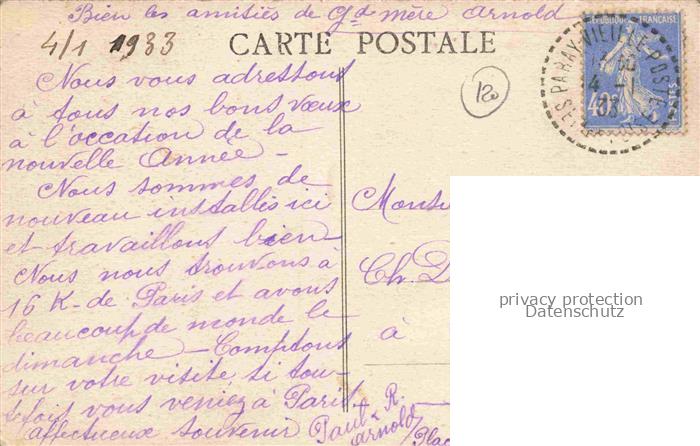 Bien les amitiés de Gd mère Arnold
4/1 1933
CARTE POSTALE
RÉPUBLIQUE FRANÇAISE
POSTES
40c
PARAY-VIEILLE-POSTE
4 - 1
33
12
Nous vous adressons
à tous nos bons vœux
à l'occation de la
nouvelle Année -
Nous sommes de
nouveau installés ici
et travaillons bien
Nous nous trouvons à
16 K. de Paris et avons
beaucoup de monde le
dimanche - Comptons
sur votre visite, si tou-
tefois vous veniez à Paris
affectueux souvenir Paul & R.
Arnold
Monsi
Ch. D
à
privacy protection
Datenschutz